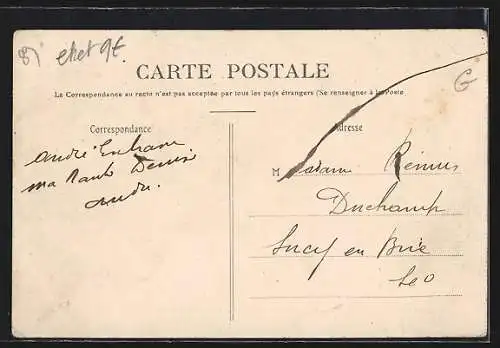 CARTE POSTALE
La Correspondance au recto n'est pas acceptée par tous les pays étrangers (Se renseigner à la Poste
Correspondance
Adresse
André
ma
André.
Madame Remus
Duchamp
Sucy en Brie